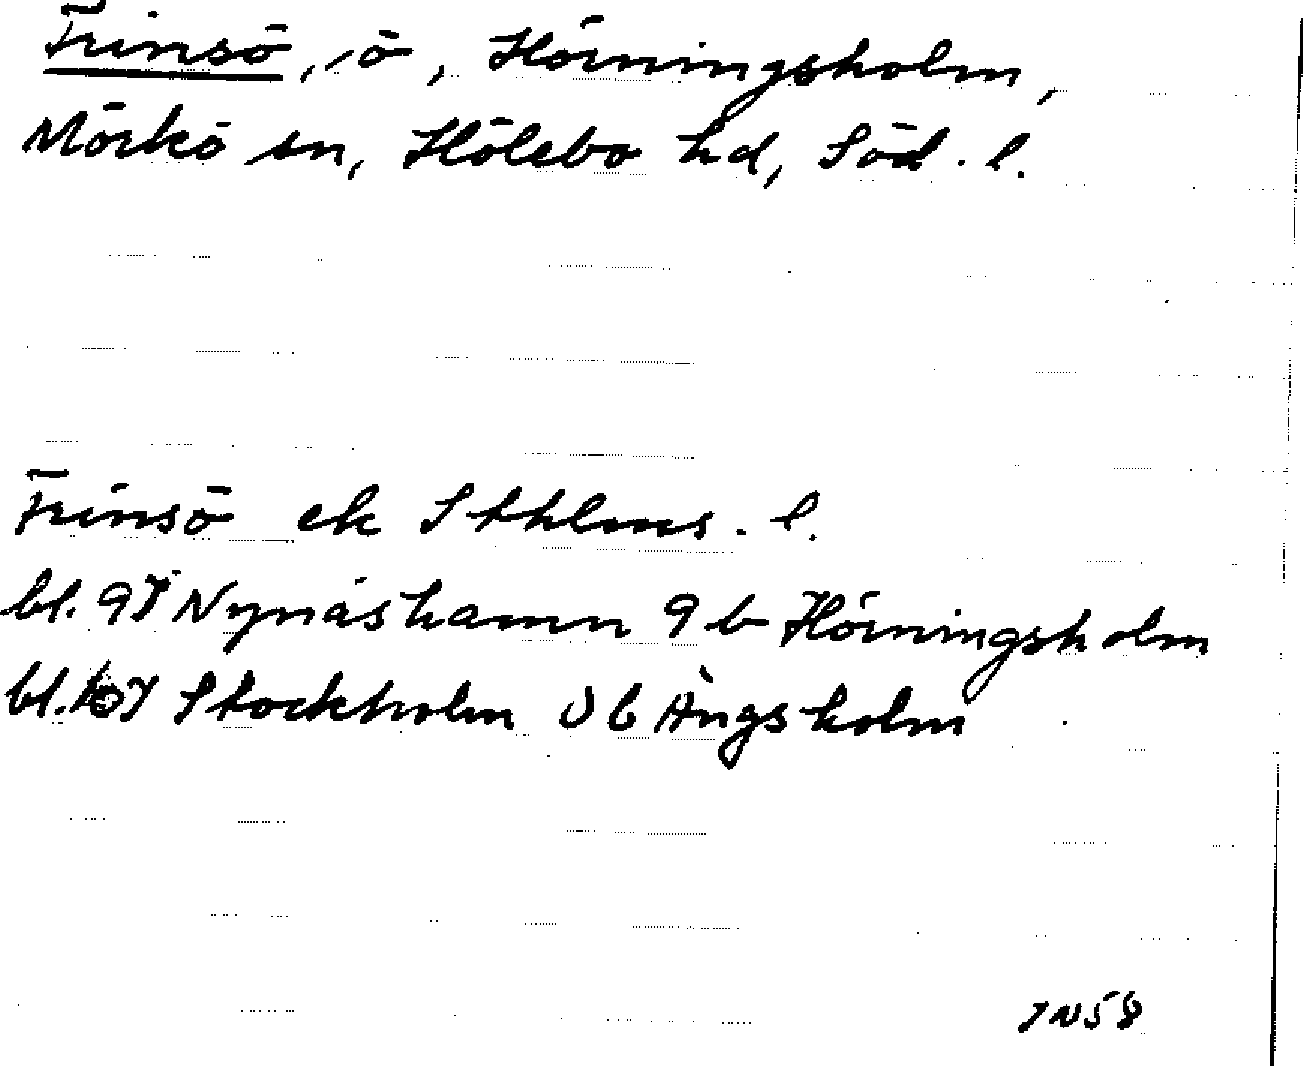 Trinsö, ö, Hörningsholm,
Mörkö sn, Hölebo hd, Söd. l.
Trinsö ek Sthlms. l.
bl. 9I Nynäshamn 9 b Hörningsholm
bl. 10I Stockholm 0 b Ängsholm
IN58